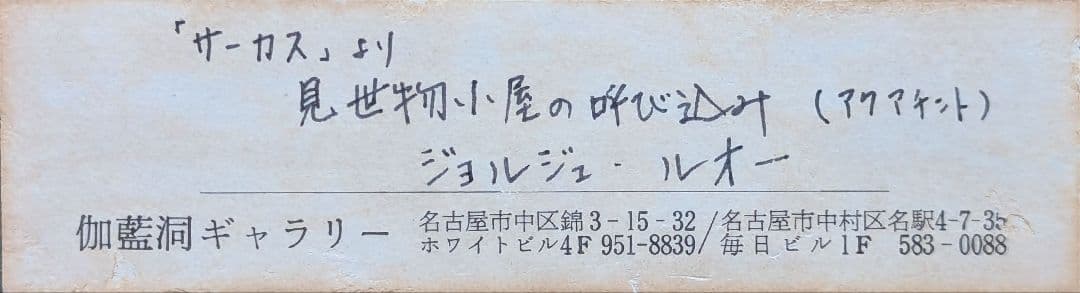 「サーカス」より
見世物小屋の呼び込み (アクアチント)
ジョルジュ・ルオー
伽藍洞ギャラリー
名古屋市中区錦3-15-32/名古屋市中村区名駅4-7-35
ホワイトビル4F 951-8839/毎日ビル1F 583-0088